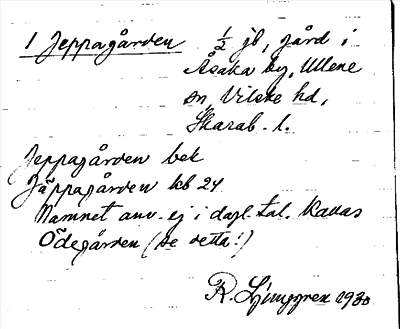 1 Jeppagården ½ jb, gård i
Åsaka by, Ullene
sn, Vilske hd,
Skarab. l.
Jeppagården bek
Jäppagården kb 24
Namnet anv. ej i dagl. tal. Kallas
Ödegården (se detta!)
R. Ljunggren 1930